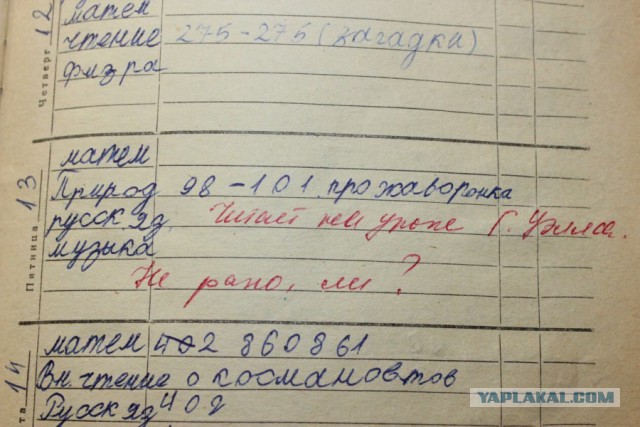 матем
12
Четверг
чтение 275-275 (загадки)
физра
матем
13
Природ 98-101 про жаворонка
Пятница
русск яз Читает на уроке Г. Уэллса.
музыка
Не рано, ли?
матем 402 860 861
14
Вн чтение о космановтов
та
Русск яз 402
YAPLAKAL.COM